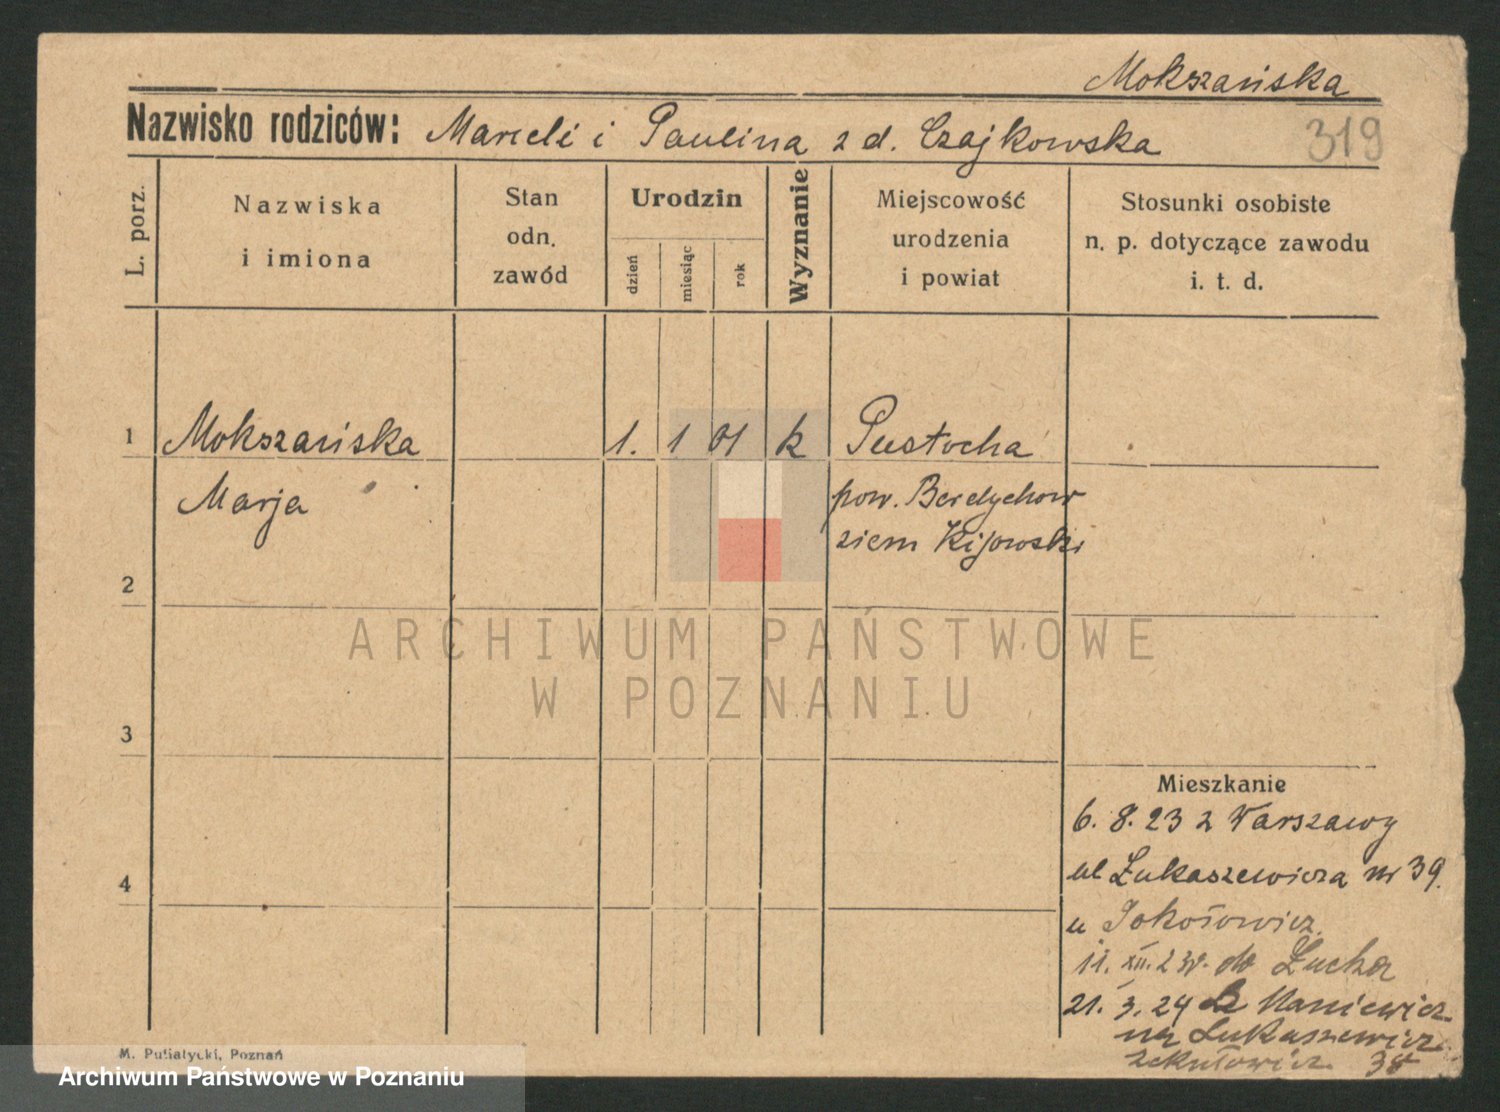 Mokszańska
Nazwisko rodziców: Marceli i Paulina z d. Czajkowska
319
L. porz.
Nazwiska
i imiona
Stan
odn.
zawód
Urodzin
dzień
miesiąc
rok
Wyznanie
Miejscowość
urodzenia
i powiat
Stosunki osobiste
n. p. dotyczące zawodu
i. t. d.
1 Mokszańska 1. 1 01 k Pustocha
Marja pow. Berdychow
ziem Kijowski
2
ARCHIWUM PAŃSTWOWE
W POZNANIU
3
Mieszkanie
6. 8. 23 z Warszawy
4
ul Łukaszewicza nr 39.
u
11. XII. 23. do Łucka
21. 3. 24 Maniewicz
na Łukaszewicz
38
M. Putiatycki, Poznań
Archiwum Państwowe w Poznaniu